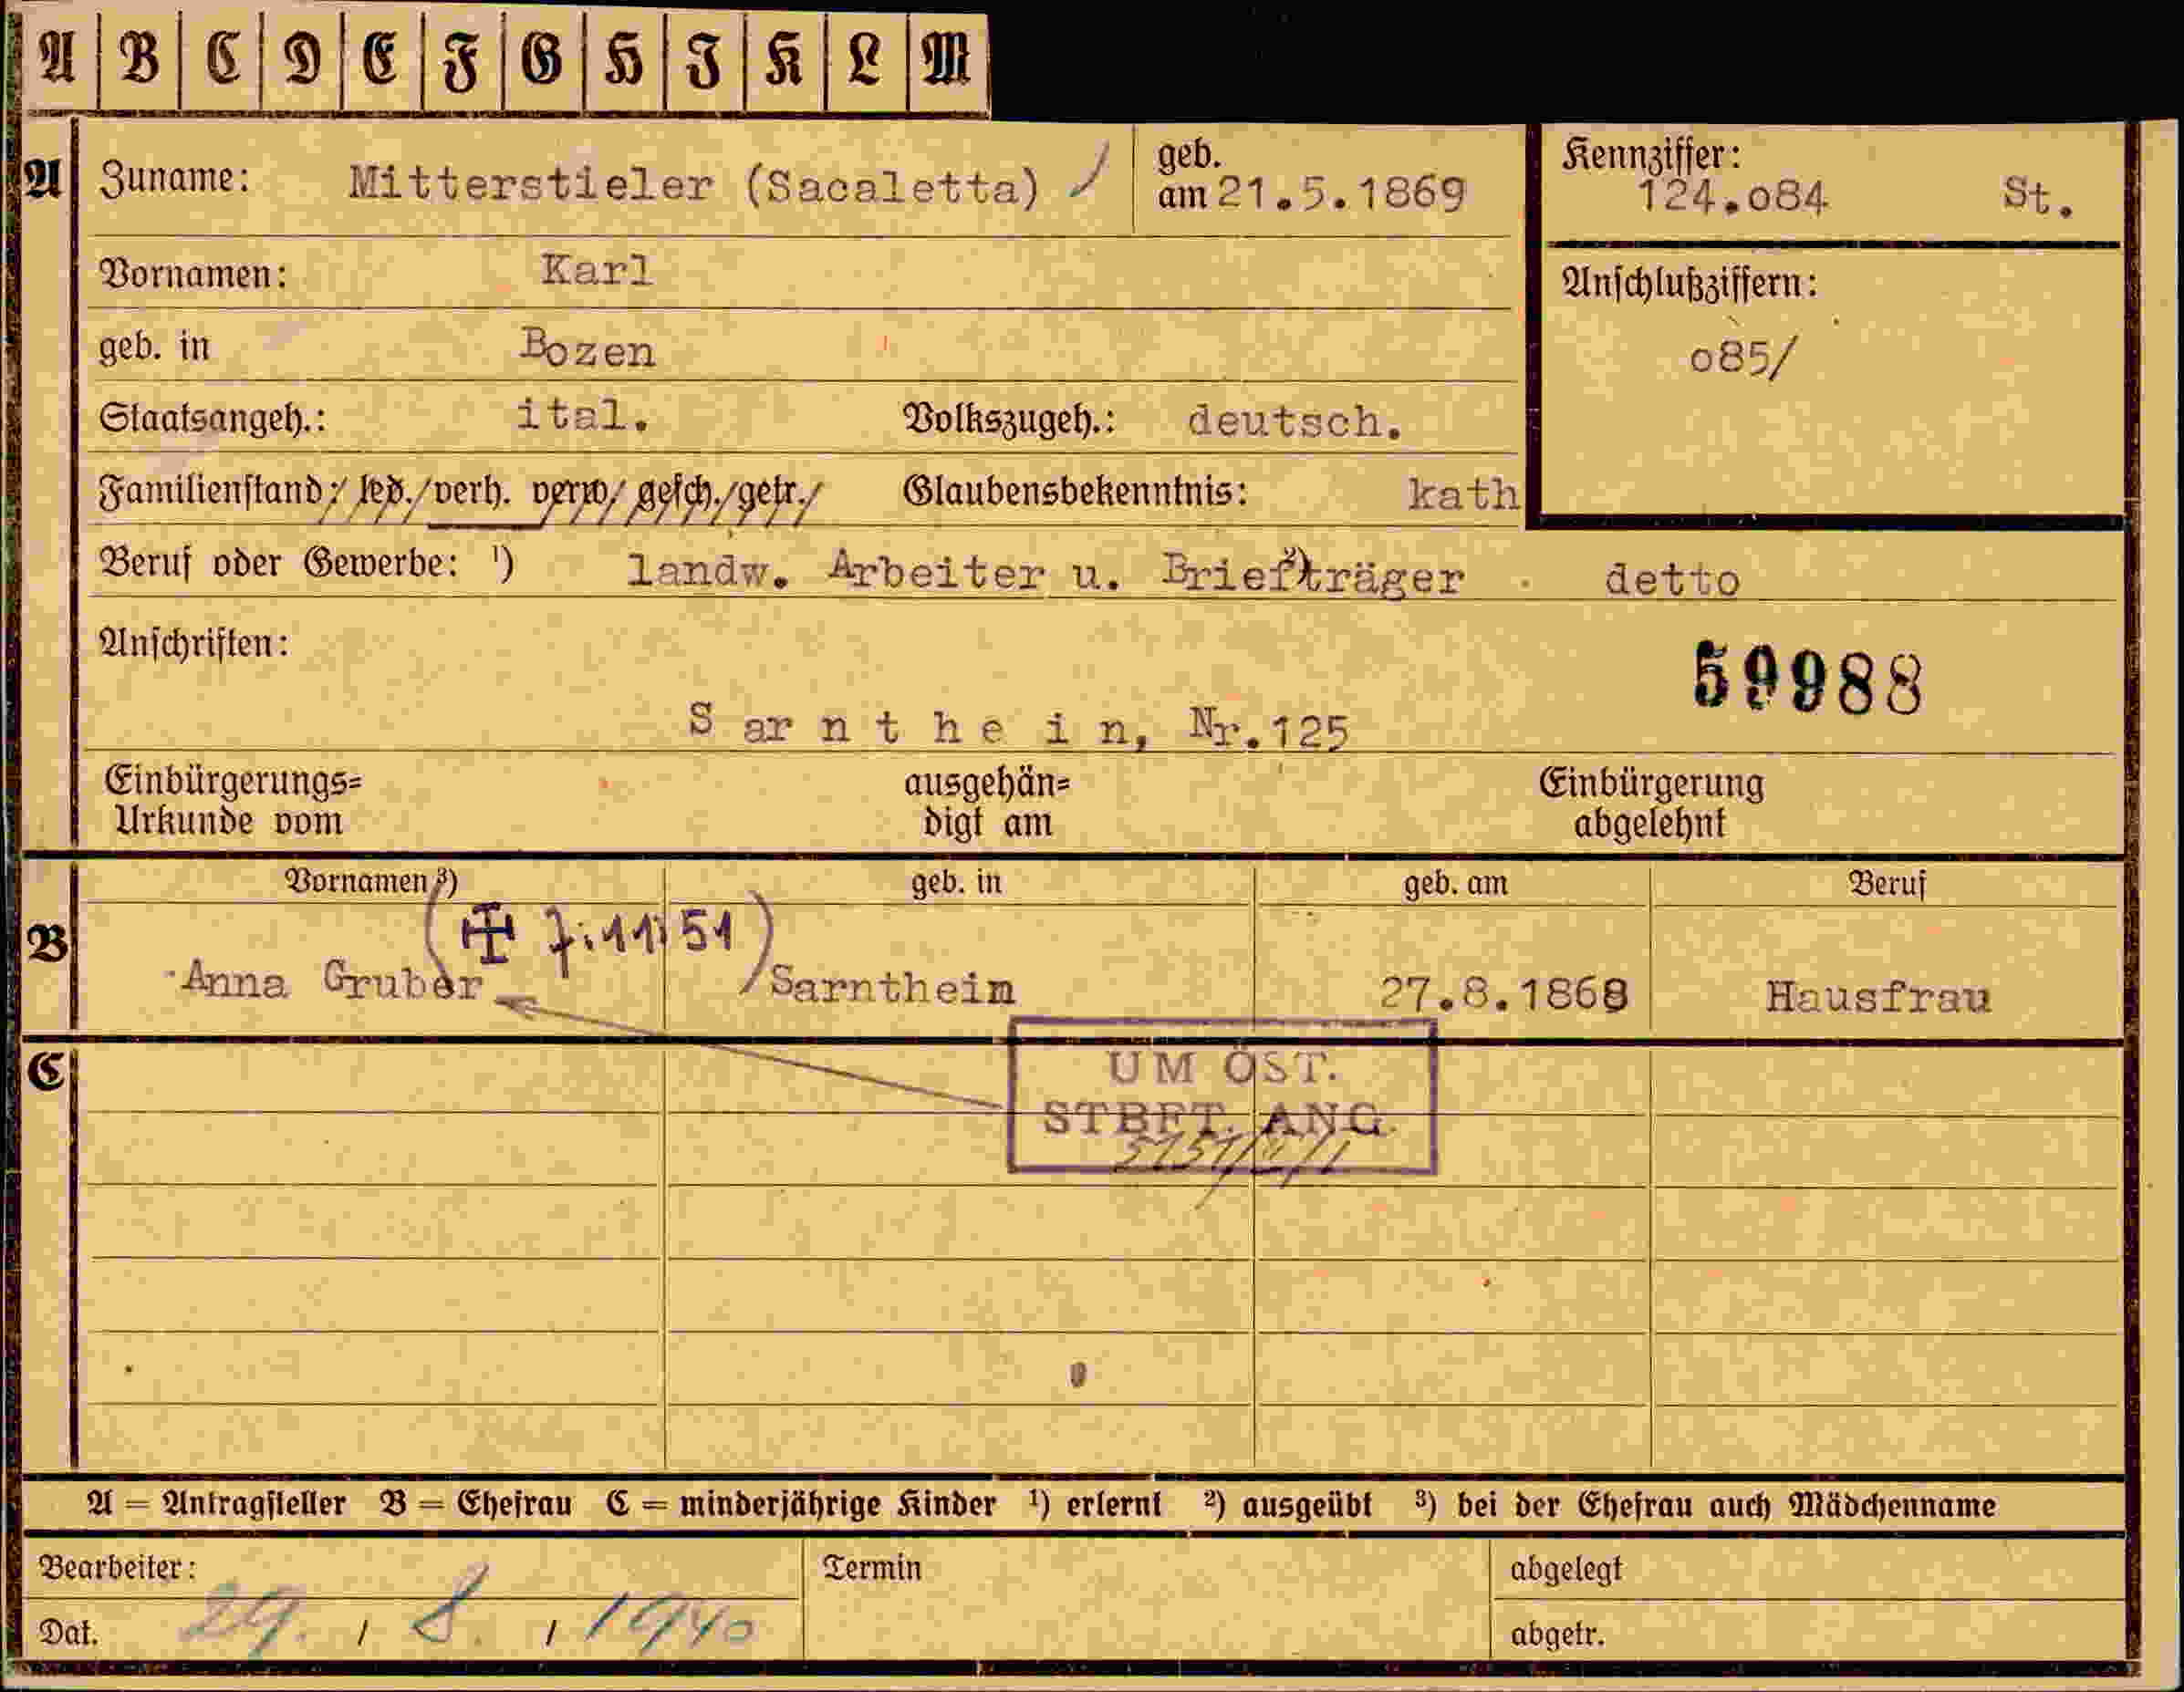 A B C D E F G H I K L M
A Zuname: Mitterstieler (Sacaletta) geb. am 21.5.1869
Kennziffer: 124.o84 St.
Vornamen: Karl
Anschlußziffern:
geb. in Bozen
o85/
Staatsangeh.: ital. Volkszugeh.: deutsch.
Familienstand: led./verh. verw/ gesch./getr./ Glaubensbekenntnis: kath
Beruf oder Gewerbe: ¹) landw. Arbeiter u. Briefträger ²) detto
Anschriften:
59988
Sarnthein, Nr.125
Einbürgerungs=
Urkunde vom
ausgehän=
digt am
Einbürgerung
abgelehnt
Vornamen ³) geb. in geb. am Beruf
B
(✠ 7.11.51)
Anna Gruber Sarnthein 27.8.1868 Hausfrau
C
UM ÖST.
STBFT. ANG.
A = Antragsteller B = Ehefrau C = minderjährige Kinder ¹) erlernt ²) ausgeübt ³) bei der Ehefrau auch Mädchenname
Bearbeiter: Termin abgelegt
Dat. 29. / 8. / 1940 abgetr.